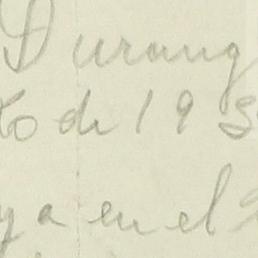 Durang
to de 19
ya en el